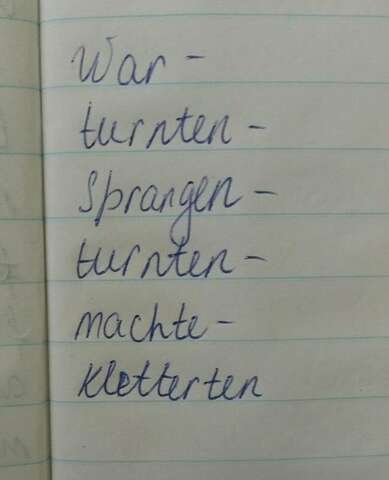 War -
turnten -
Sprangen -
turnten -
machte -
Kletterten